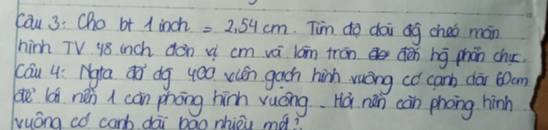 Câu 3: Cho bt 1 inch = 2,54 cm. Tìm độ dài đg chéo màn
hình TV 48 inch đơn vị cm và làm tròn đến hg phần chục.
Câu 4: Ngta đã dg 400 viên gạch hình vuông có cạnh dài 60cm
để lái nền 1 căn phòng hình vuông. Hỏi nền căn phòng hình
vuông có cạnh dài bao nhiêu mét?